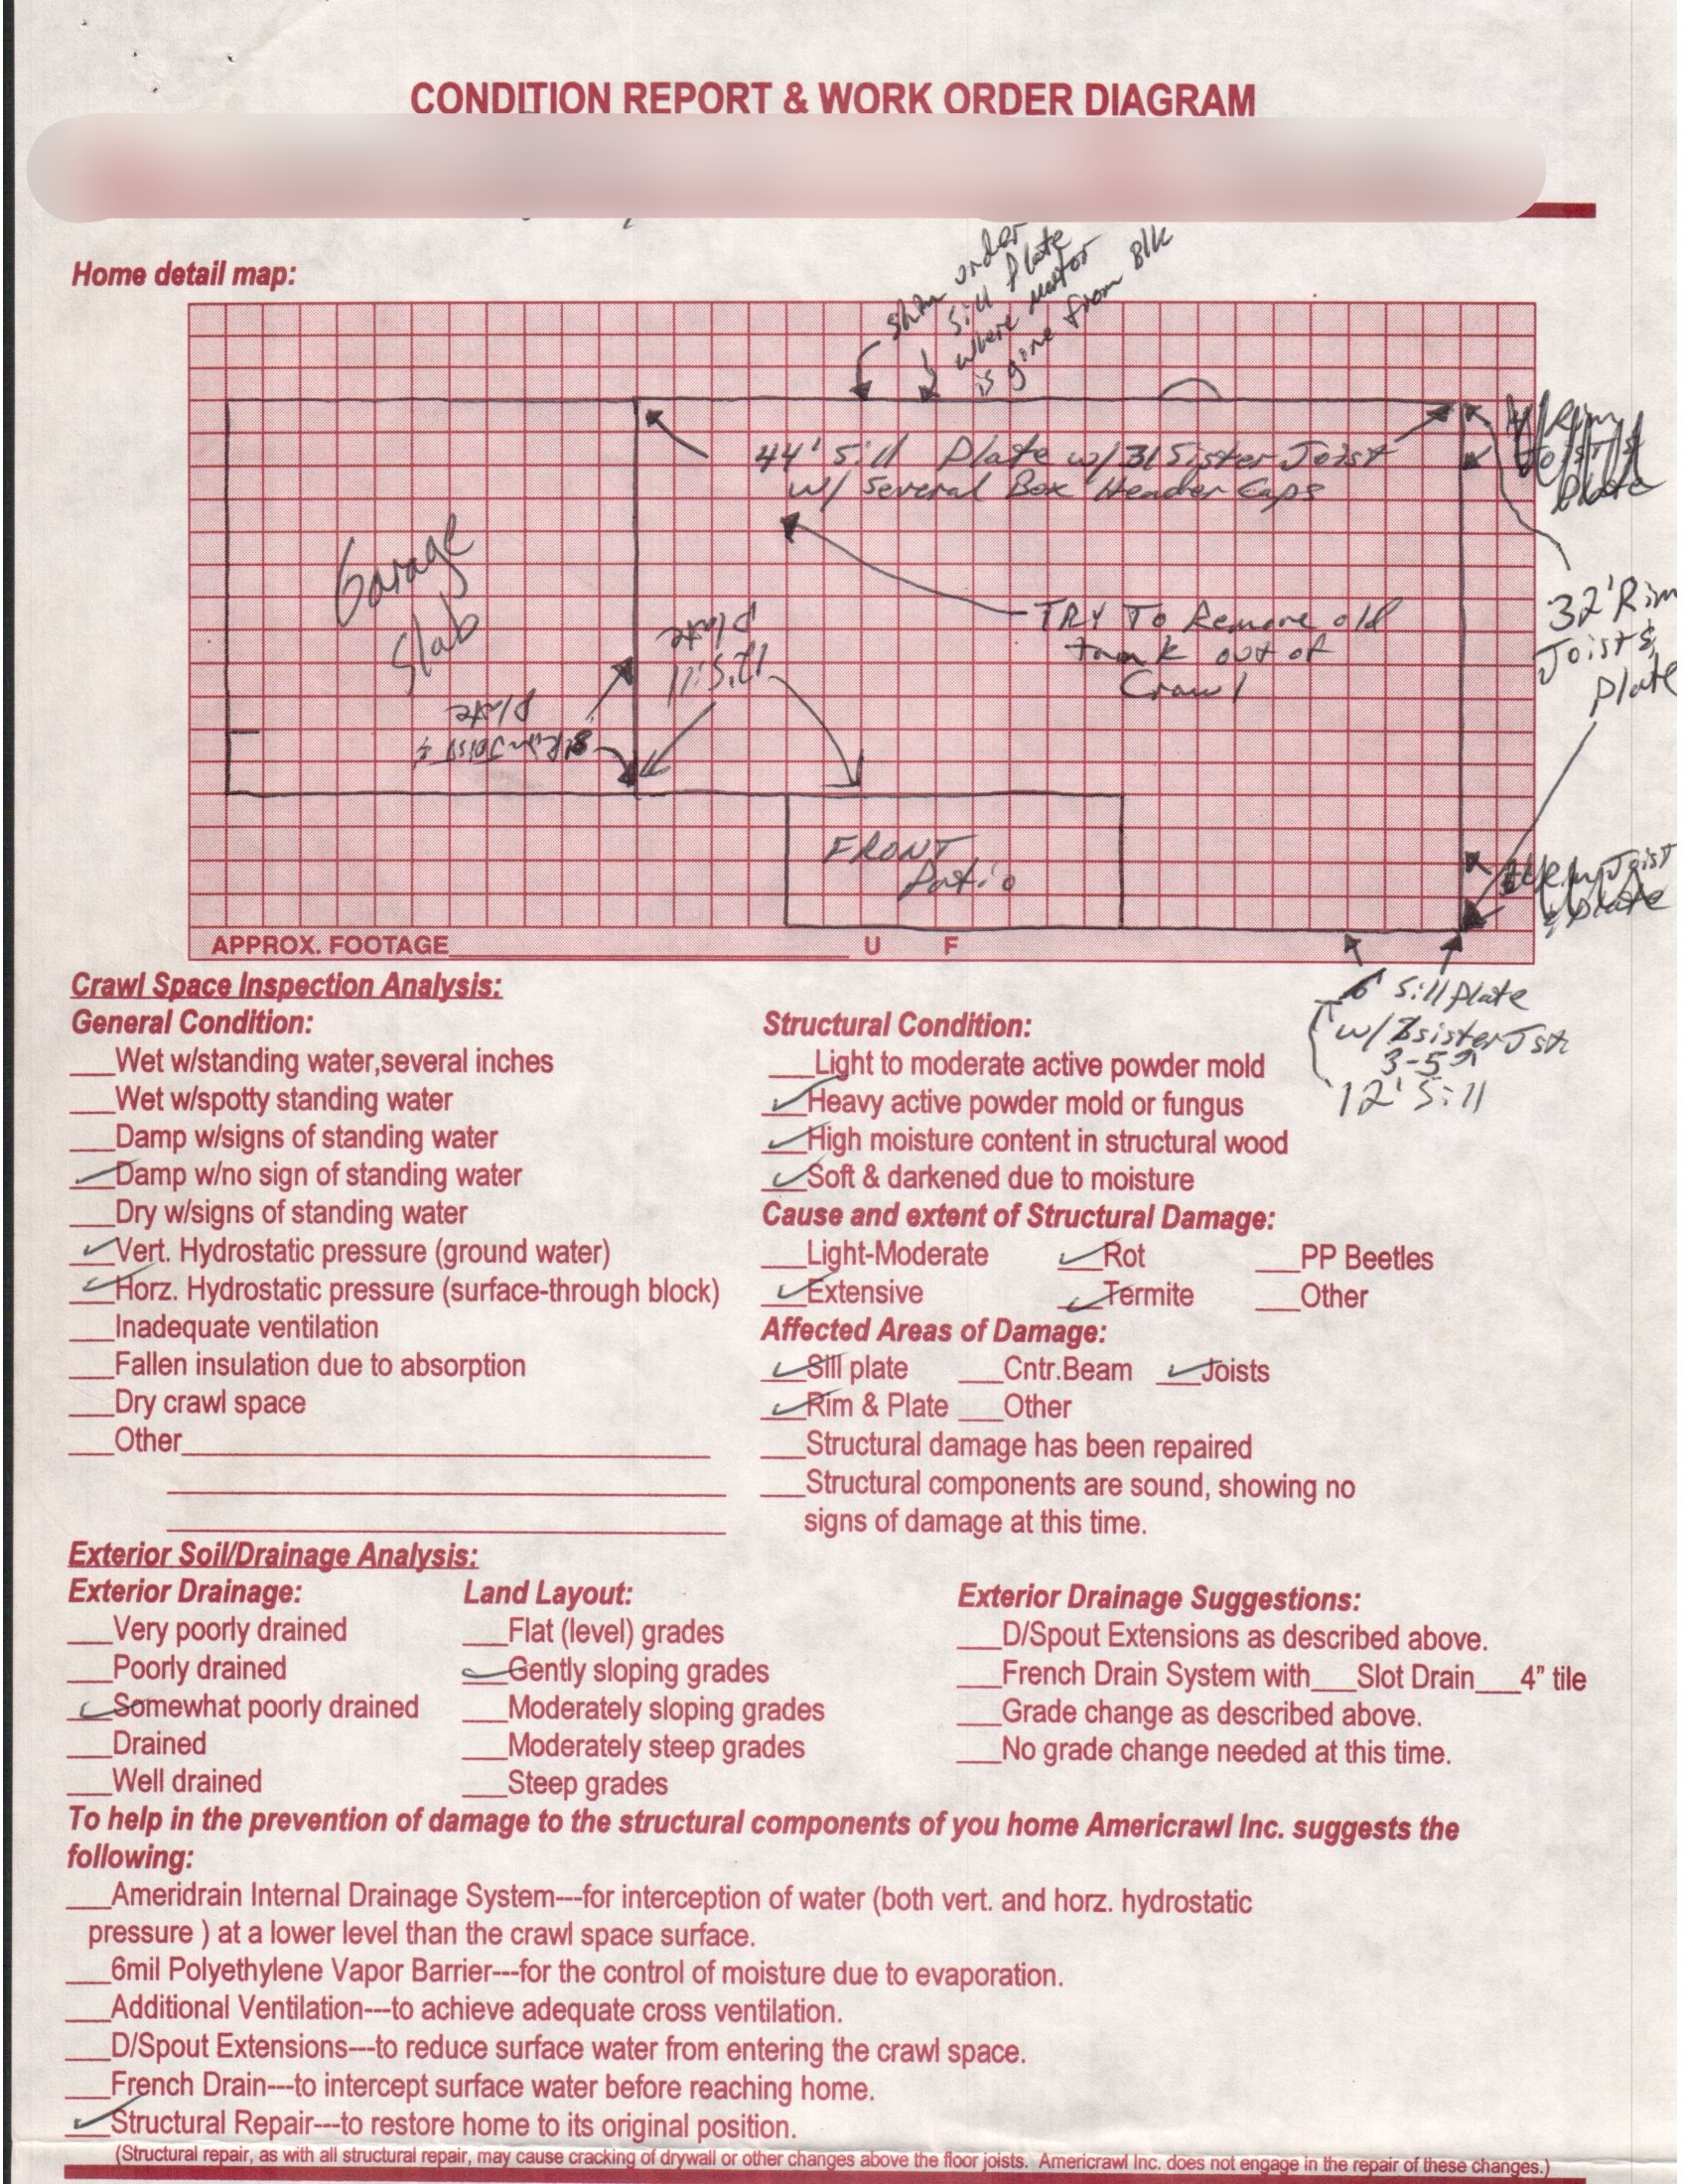 CONDITION REPORT & WORK ORDER DIAGRAM
Home detail map:
shim under
Sill Plate
where mortor
is gone from Blk
44' Sill Plate w/31 Sister Joist
w/ Several Box Header Caps
Rim
Joist &
Plate
Garage
Slab
TRY To Remove old
tank out of
Crawl
32' Rim
Joist &
Plate
12' Sill
Plate
8' Rim Joist &
Plate
FRONT
Patio
Rim Joist
& Plate
APPROX. FOOTAGE U F
6' Sill Plate
w/ sister Jst
3-5
12' Sill
Crawl Space Inspection Analysis:
General Condition:
___Wet w/standing water,several inches
___Wet w/spotty standing water
___Damp w/signs of standing water
✓ Damp w/no sign of standing water
___Dry w/signs of standing water
✓ Vert. Hydrostatic pressure (ground water)
✓ Horz. Hydrostatic pressure (surface-through block)
___Inadequate ventilation
___Fallen insulation due to absorption
___Dry crawl space
___Other
Structural Condition:
___Light to moderate active powder mold
✓ Heavy active powder mold or fungus
✓ High moisture content in structural wood
✓ Soft & darkened due to moisture
Cause and extent of Structural Damage:
___Light-Moderate ✓ Rot ___PP Beetles
✓ Extensive ✓ Termite ___Other
Affected Areas of Damage:
✓ Sill plate ___Cntr.Beam ✓ Joists
✓ Rim & Plate ___Other
___Structural damage has been repaired
___Structural components are sound, showing no
signs of damage at this time.
Exterior Soil/Drainage Analysis:
Exterior Drainage:
___Very poorly drained
___Poorly drained
✓ Somewhat poorly drained
___Drained
___Well drained
Land Layout:
___Flat (level) grades
✓ Gently sloping grades
___Moderately sloping grades
___Moderately steep grades
___Steep grades
Exterior Drainage Suggestions:
___D/Spout Extensions as described above.
___French Drain System with___Slot Drain___4" tile
___Grade change as described above.
___No grade change needed at this time.
To help in the prevention of damage to the structural components of you home Americrawl Inc. suggests the
following:
___Ameridrain Internal Drainage System---for interception of water (both vert. and horz. hydrostatic
pressure ) at a lower level than the crawl space surface.
___6mil Polyethylene Vapor Barrier---for the control of moisture due to evaporation.
___Additional Ventilation---to achieve adequate cross ventilation.
___D/Spout Extensions---to reduce surface water from entering the crawl space.
___French Drain---to intercept surface water before reaching home.
✓ Structural Repair---to restore home to its original position.
(Structural repair, as with all structural repair, may cause cracking of drywall or other changes above the floor joists. Americrawl Inc. does not engage in the repair of these changes.)